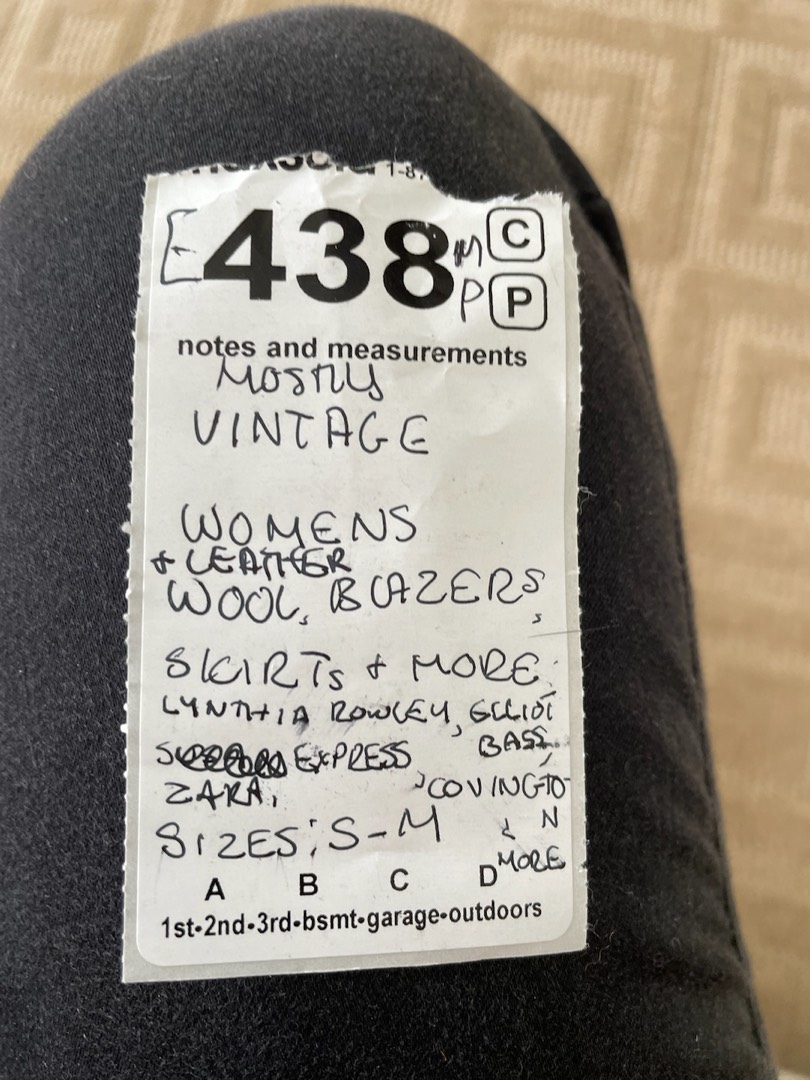 1-8
E 438 M C
P P
notes and measurements
MOSTLY
VINTAGE
WOMENS
+ LEATHER
WOOL, BLAZERS,
SKIRTS + MORE
CYNTHIA ROWLEY, ELLIOT
EXPRESS BASS,
ZARA, , COVINGTO
SIZES: S-M & N
MORE
A B C D
1st•2nd•3rd•bsmt•garage•outdoors